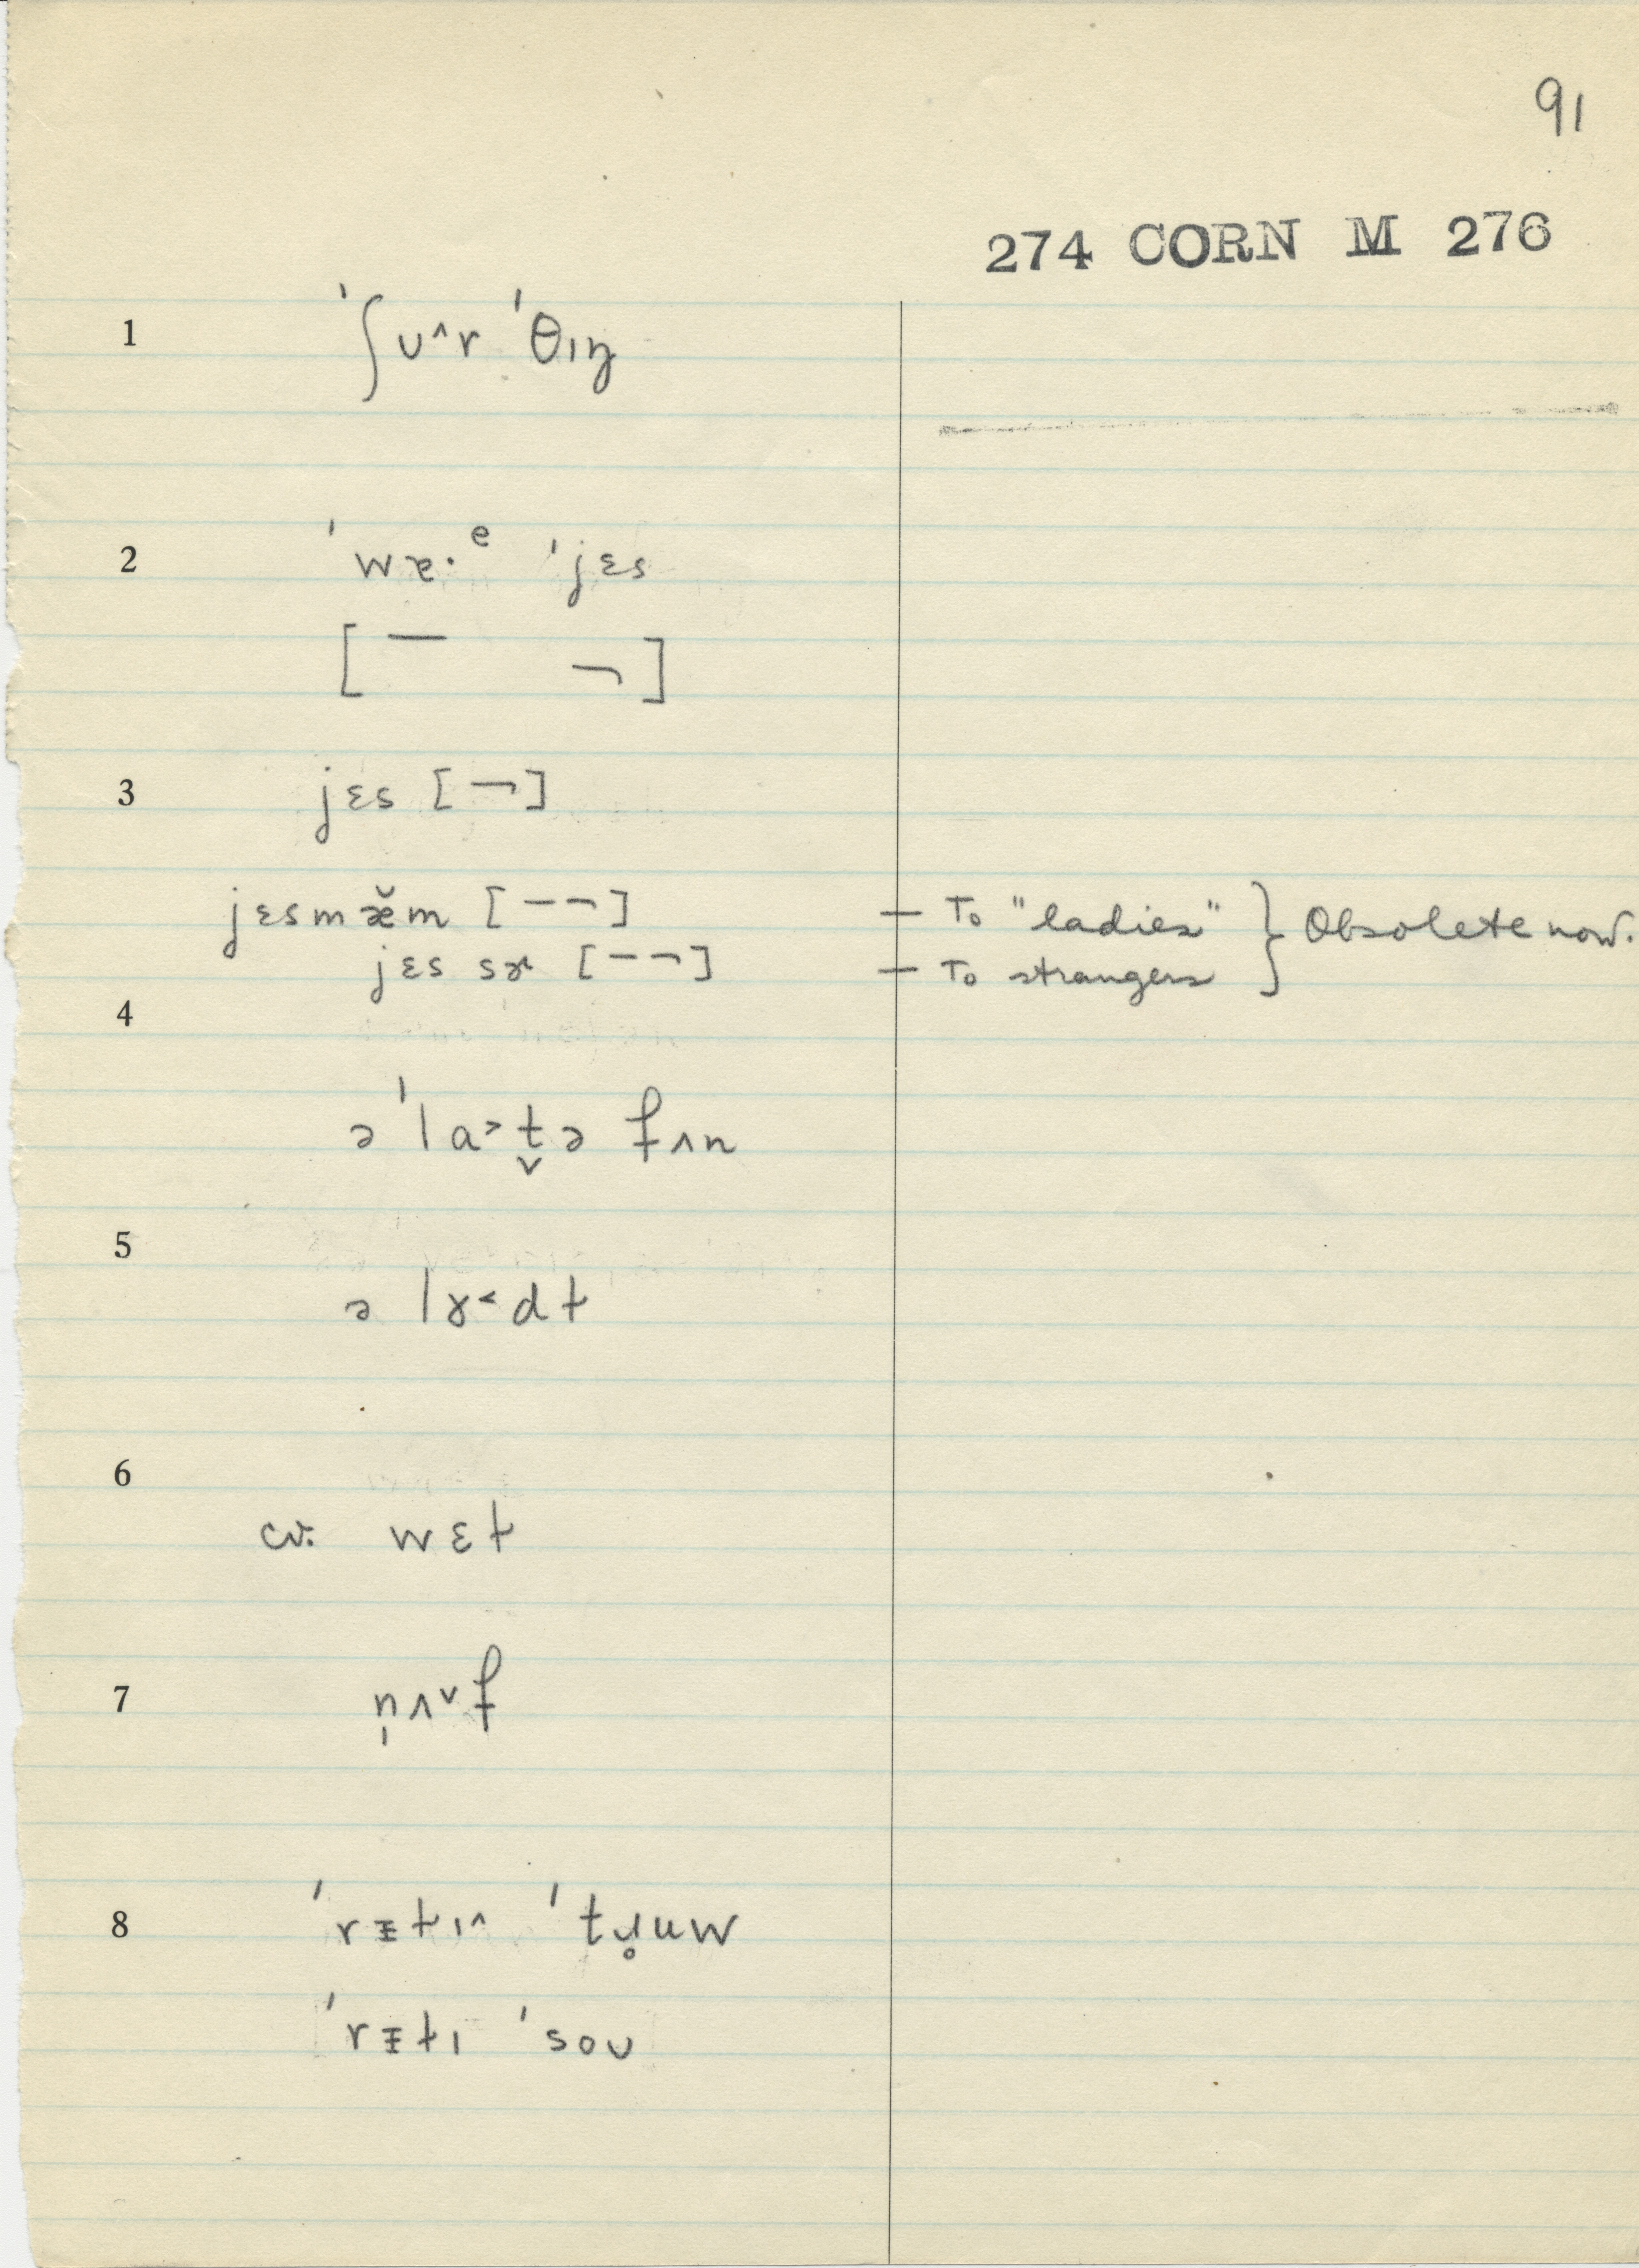 91
274 CORN M 276
1 ˈʃʊ^r ˈθɪŋ
2 ˈwæ·ᵉ ˈjɛs
[ ¯ ¬ ]
3 jɛs [¬]
jɛsmæ̆m [–¬] – To "ladies" } Obsolete now.
jɛs sɚ [–¬] – To strangers
4
ə ˈla˃t̬ə fʌn
5
ə lɤ˂dt
6
cv. wɛt
7 n̩ʌ˅f
8 ˈrᵻtɪ^ ˈtɹ̥uw
ˈrᵻtɪ ˈsoʊ